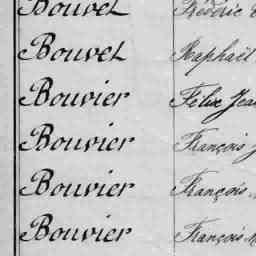 Bouvet Fréderic
Bouvet Raphaël
Bouvier Félix Jea
Bouvier François J
Bouvier François
Bouvier François M